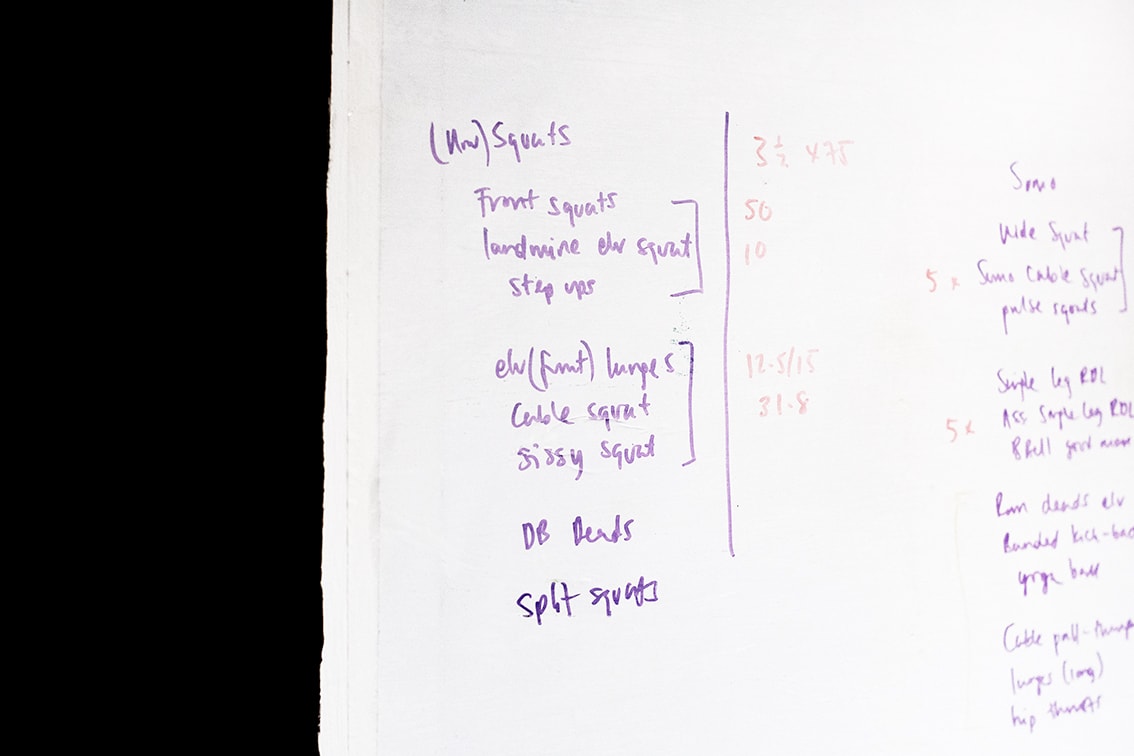 Squats
Front squats
landmine elv squat
step ups
elv (front) lunges
Cable squat
sissy squat
DB Deads
split squats
3 1/2 x 75
50
10
12.5/15
31.8
Sumo
Wide Squat
5 x Sumo Cable Squat
pulse squats
Single leg RDL
5 x Ass Single leg RDL
BBell good
Rom deads elv
Banded kick-bac
yoga ball
Cable pull-
lunges (long)
hip thrusts